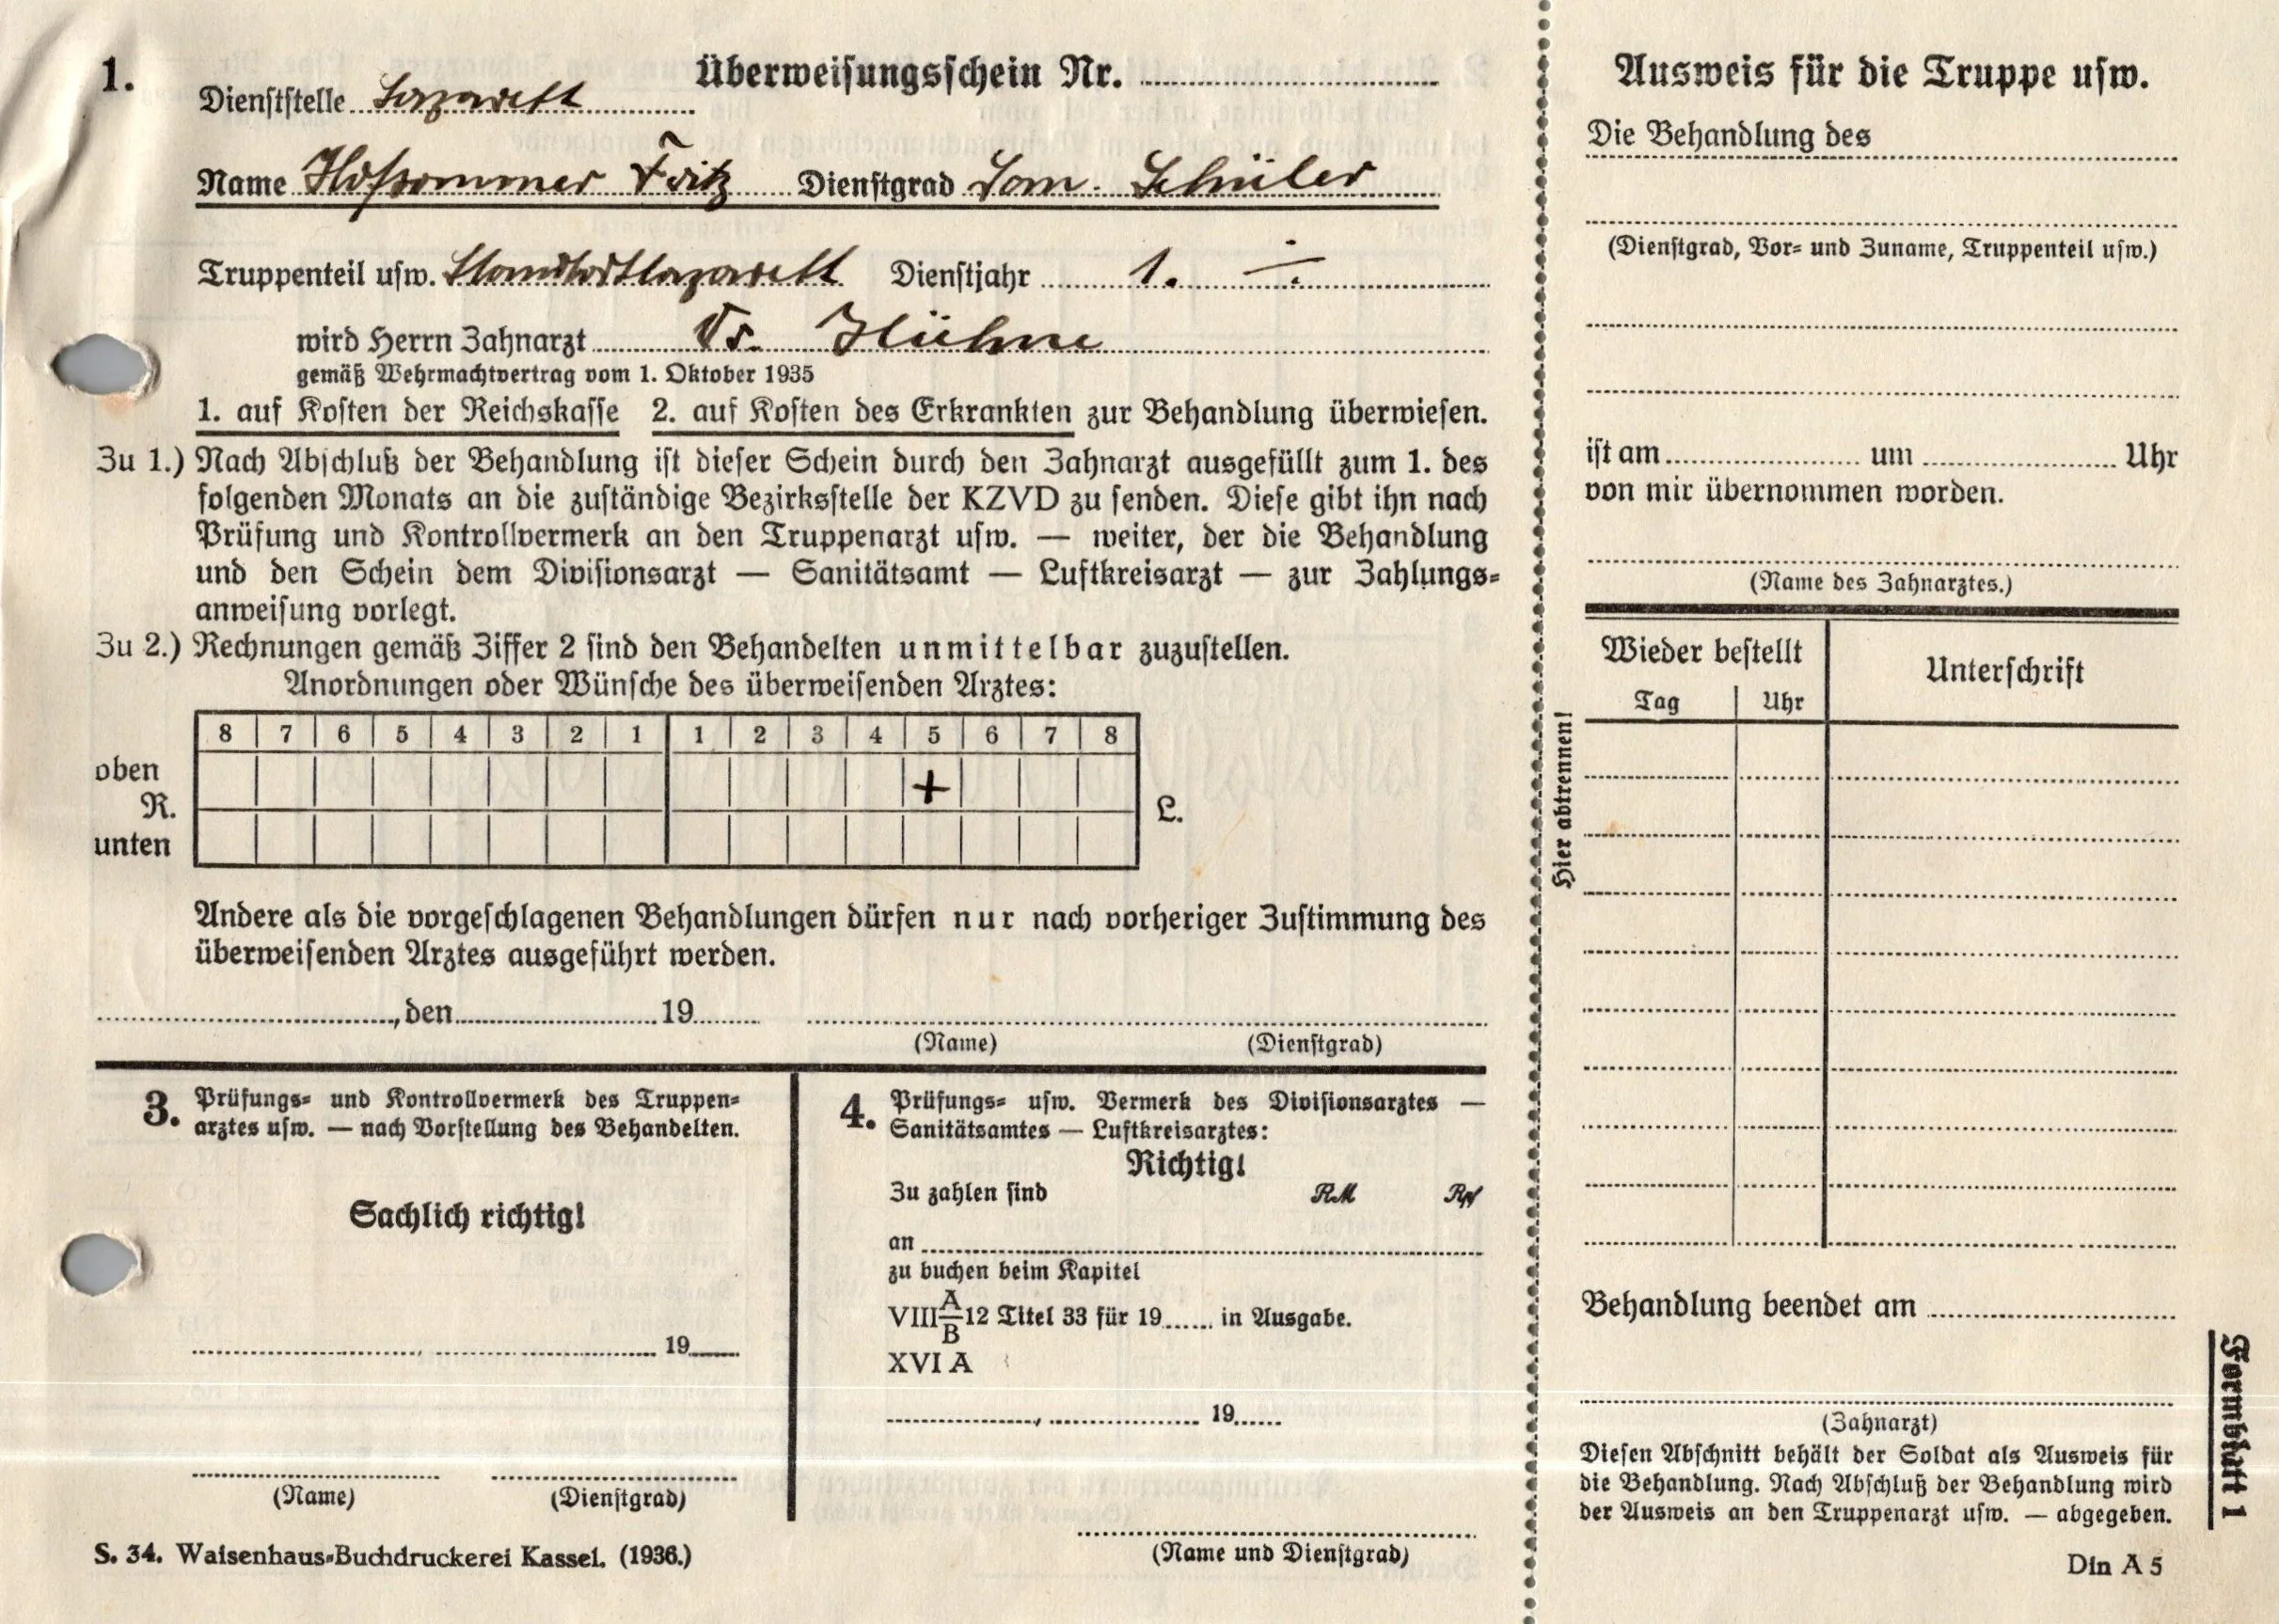 1.
Überweisungsschein Nr.
Dienststelle Lazarett
Name Hofsommer Fritz Dienstgrad San. Schüler
Truppenteil usw. Standortlazarett Dienstjahr 1.
wird Herrn Zahnarzt Dr. Hühne
gemäß Wehrmachtvertrag vom 1. Oktober 1935
1. auf Kosten der Reichskasse 2. auf Kosten des Erkrankten zur Behandlung überwiesen.
Zu 1.) Nach Abschluß der Behandlung ist dieser Schein durch den Zahnarzt ausgefüllt zum 1. des
folgenden Monats an die zuständige Bezirksstelle der KZVD zu senden. Diese gibt ihn nach
Prüfung und Kontrollvermerk an den Truppenarzt usw. — weiter, der die Behandlung
und den Schein dem Divisionsarzt — Sanitätsamt — Luftkreisarzt — zur Zahlungs-
anweisung vorlegt.
Zu 2.) Rechnungen gemäß Ziffer 2 sind den Behandelten unmittelbar zuzustellen.
Anordnungen oder Wünsche des überweisenden Arztes:
8 7 6 5 4 3 2 1 1 2 3 4 5 6 7 8
oben +
R. L.
unten
Andere als die vorgeschlagenen Behandlungen dürfen nur nach vorheriger Zustimmung des
überweisenden Arztes ausgeführt werden.
, den 19
(Name) (Dienstgrad)
3. Prüfungs- und Kontrollvermerk des Truppen-
arztes usw. — nach Vorstellung des Behandelten.
Sachlich richtig!
, 19
(Name) (Dienstgrad)
4. Prüfungs- usw. Vermerk des Divisionsarztes —
Sanitätsamtes — Luftkreisarztes:
Richtig!
Zu zahlen sind RM Rpf
an
zu buchen beim Kapitel
VIII A/B 12 Titel 33 für 19 in Ausgabe.
XVI A
, 19
(Name und Dienstgrad)
S. 34. Waisenhaus-Buchdruckerei Kassel. (1936.)
Hier abtrennen!
Ausweis für die Truppe usw.
Die Behandlung des
(Dienstgrad, Vor- und Zuname, Truppenteil usw.)
ist am um Uhr
von mir übernommen worden.
(Name des Zahnarztes.)
Wieder bestellt Unterschrift
Tag Uhr
Behandlung beendet am
(Zahnarzt)
Diesen Abschnitt behält der Soldat als Ausweis für
die Behandlung. Nach Abschluß der Behandlung wird
der Ausweis an den Truppenarzt usw. — abgegeben.
Din A 5
Formblatt 1